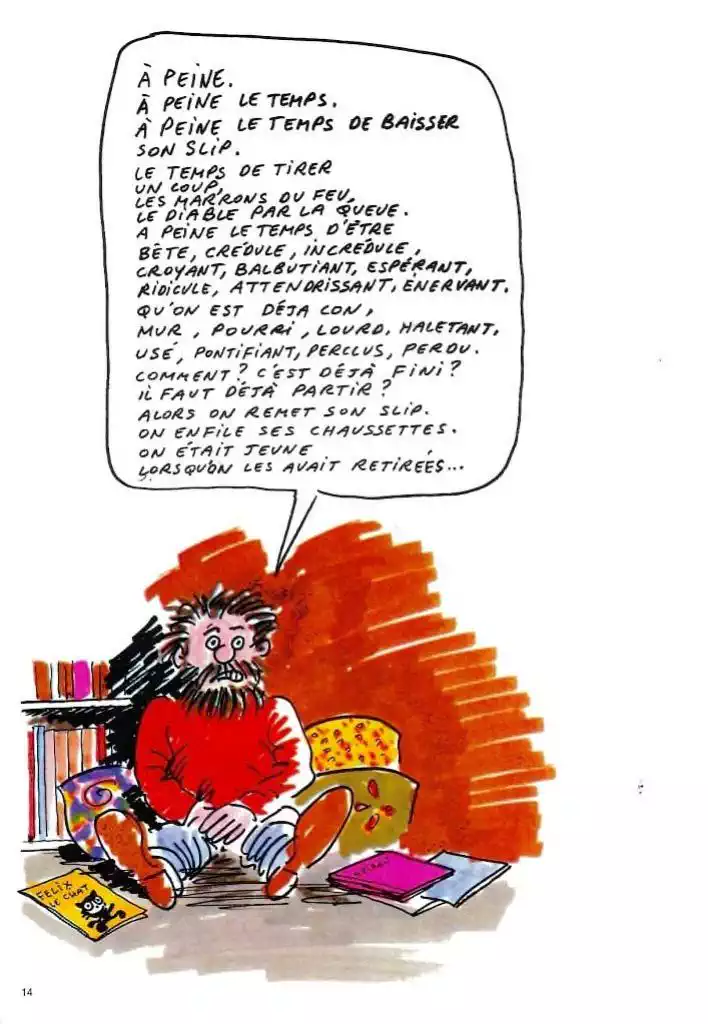 À PEINE.
À PEINE LE TEMPS.
À PEINE LE TEMPS DE BAISSER
SON SLIP.
LE TEMPS DE TIRER
UN COUP,
LES MARRONS DU FEU,
LE DIABLE PAR LA QUEUE.
A PEINE LE TEMPS D'ÊTRE
BÊTE, CRÉDULE, INCRÉDULE,
CROYANT, BALBUTIANT, ESPÉRANT,
RIDICULE, ATTENDRISSANT, ENERVANT.
QU'ON EST DÉJA CON,
MUR, POURRI, LOURD, HALETANT,
USÉ, PONTIFIANT, PERCLUS, PERDU.
COMMENT? C'EST DÉJÀ FINI?
IL FAUT DÉJÀ PARTIR?
ALORS ON REMET SON SLIP.
ON ENFILE SES CHAUSSETTES.
ON ÉTAIT JEUNE
LORSQU'ON LES AVAIT RETIRÉES...
FELIX
LE CHAT
14